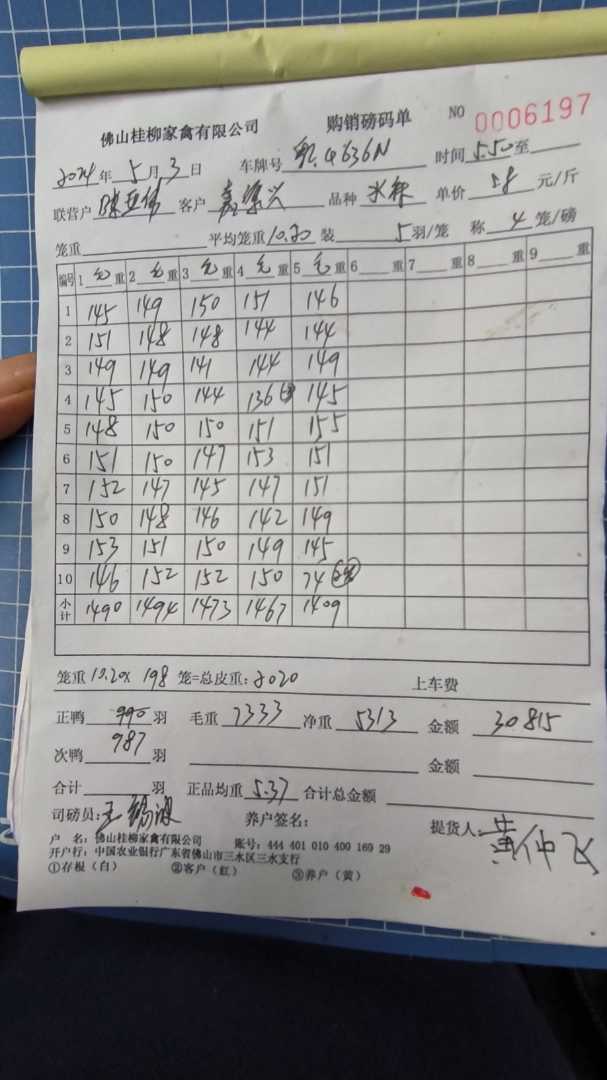 佛山桂柳家禽有限公司 购销磅码单 NO 0006197
2024年 5月 3日 车牌号 4636N 时间 5.50 至
联营户 客户 品种 水 单价 5.8 元/斤
笼重 平均笼重 10.20 装 5 羽/笼 称 4 笼/磅
编号 1 毛重 2 毛重 3 毛重 4 毛重 5 毛重 6 重 7 重 8 重 9 重
1 145 149 150 151 146
2 151 148 148 144 144
3 149 149 141 144 149
4 145 150 144 136 145
5 148 150 150 151 155
6 151 150 147 153 151
7 152 147 145 147 151
8 150 148 146 142 149
9 153 151 150 149 145
10 146 152 152 150 74
小计 1490 1494 1473 1467 1409
笼重 10.20x 198 笼=总皮重: 2020 上车费
正鸭 990 羽 毛重 7333 净重 5313 金额 30815
次鸭 987 羽 金额
合计 羽 正品均重 5.37 合计总金额
司磅员: 王锡波 养户签名: 提货人: 黄仲飞
户 名: 佛山桂柳家禽有限公司 账号: 444 401 010 400 169 29
开户行: 中国农业银行广东省佛山市三水区三水支行
①存根(白) ②客户(红) ③养户(黄)